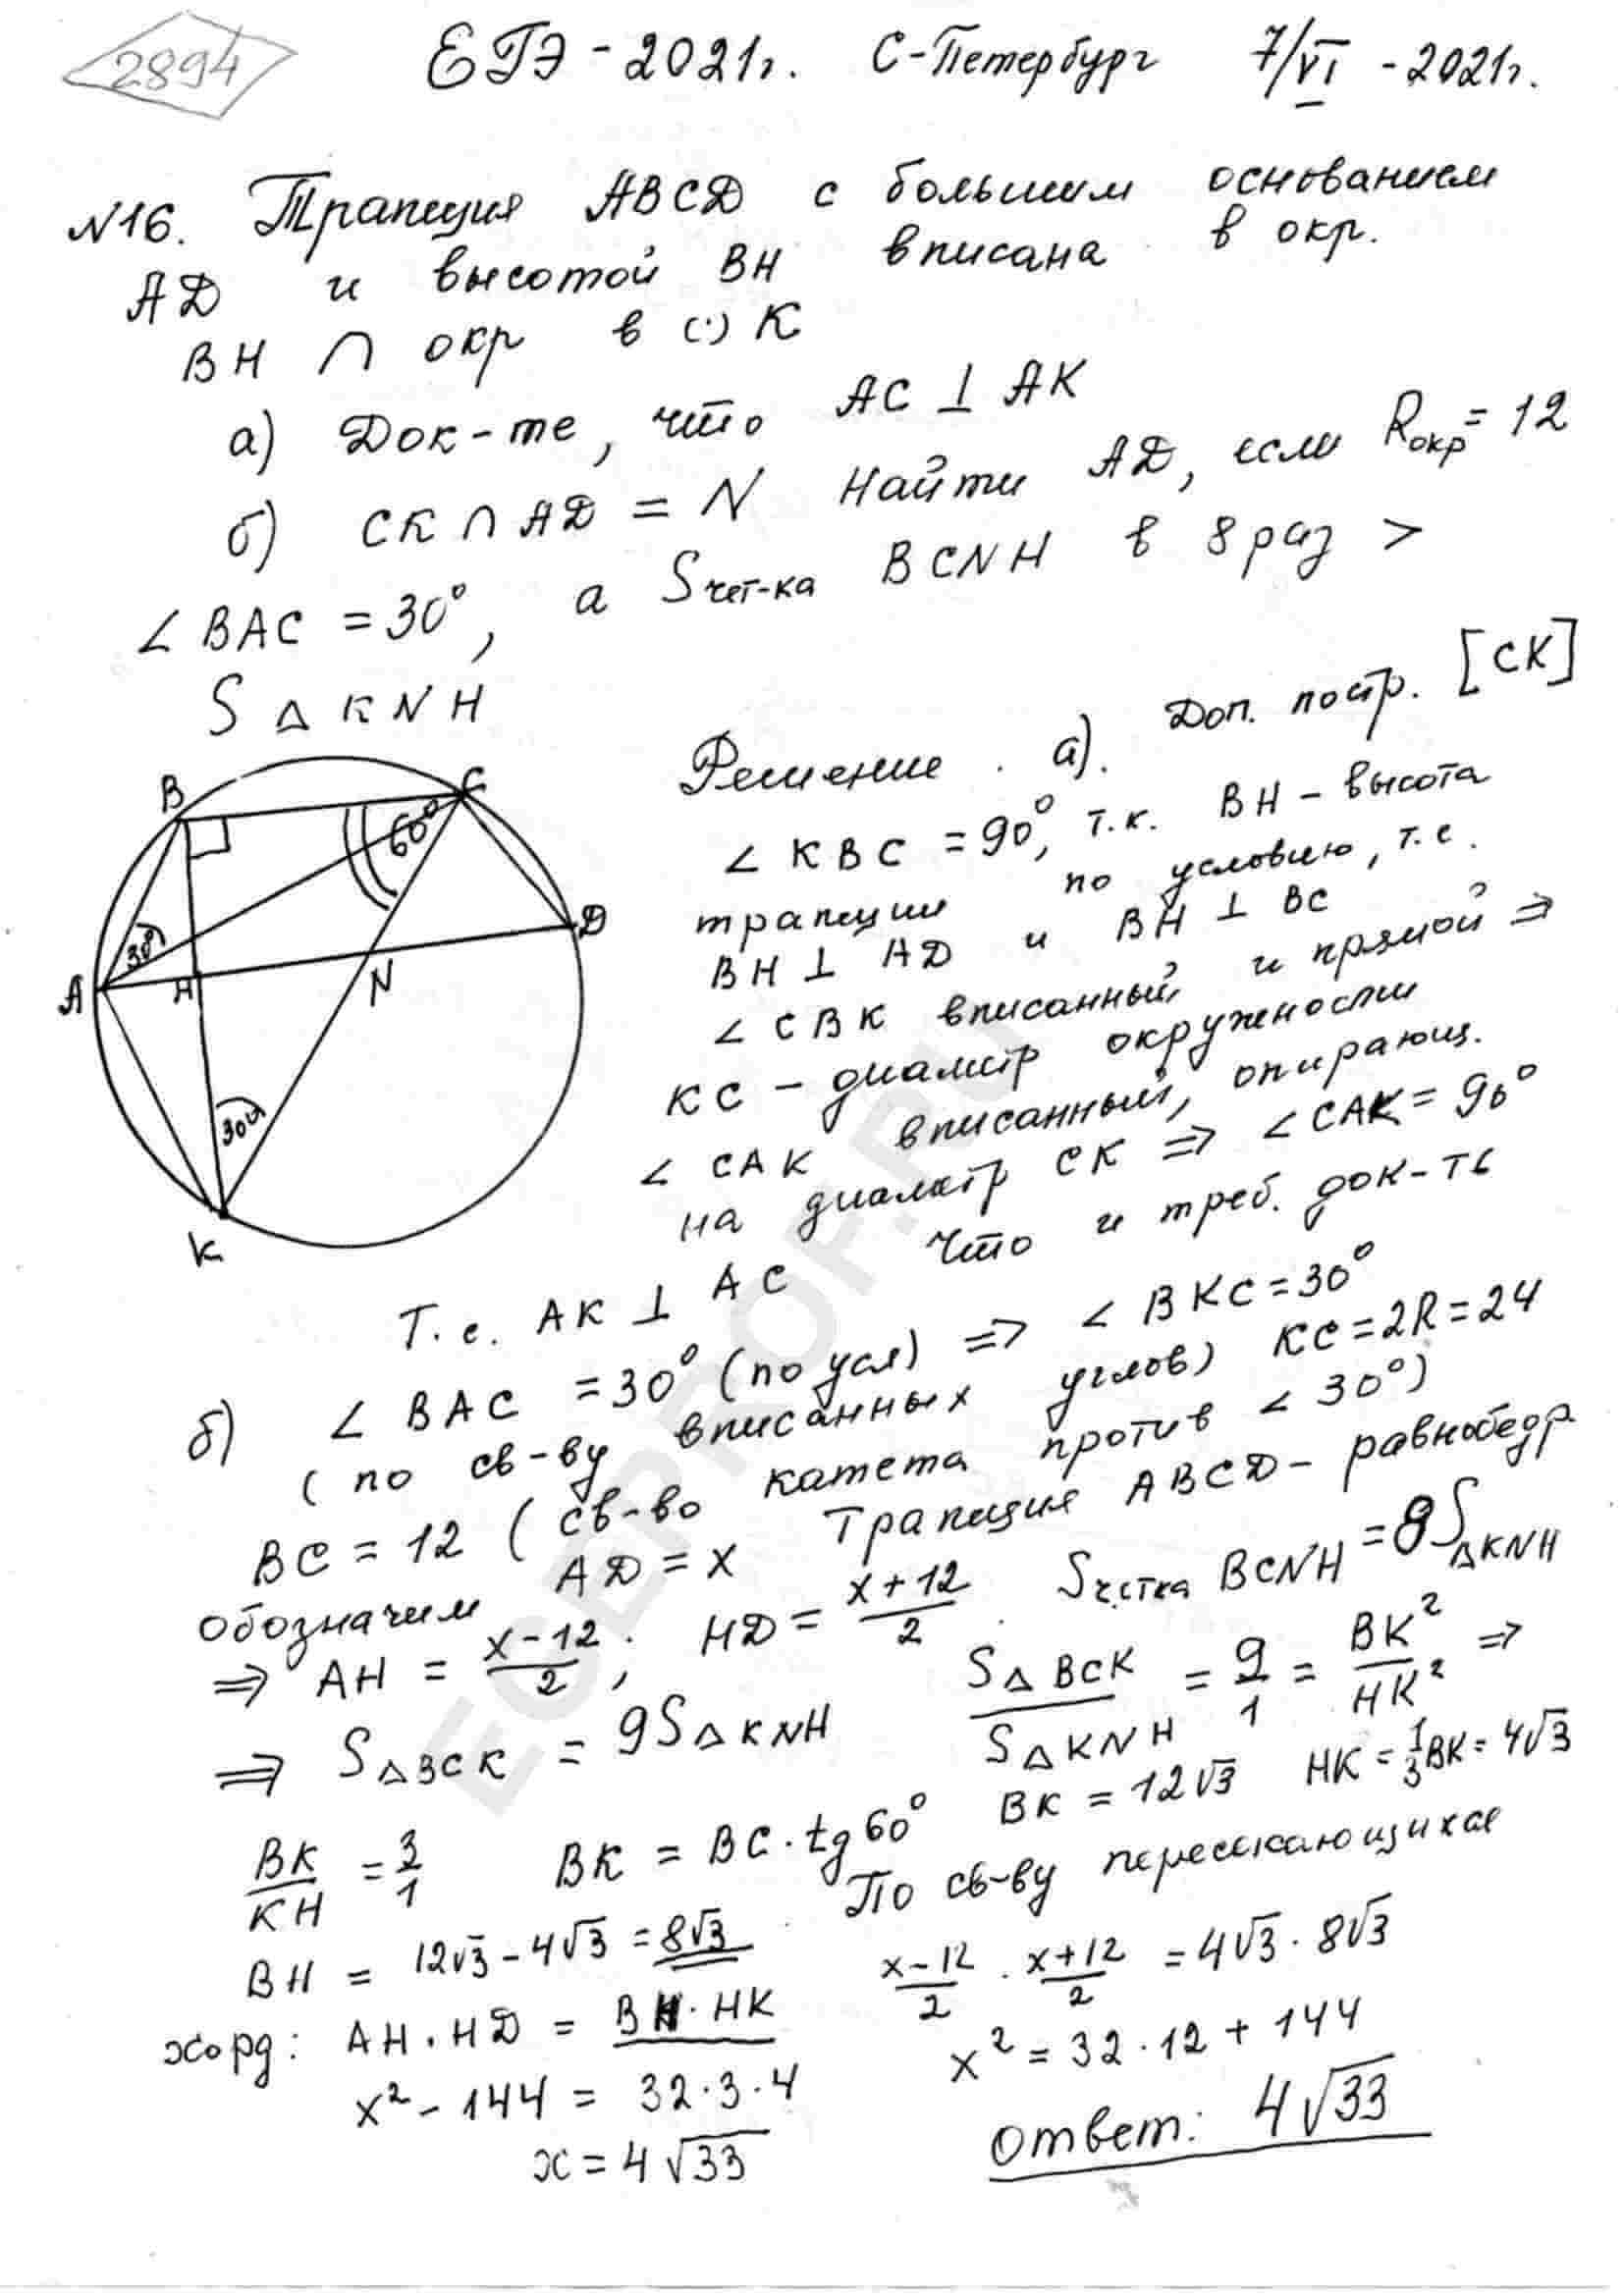 2894
ЕГЭ - 2021г. С-Петербург 7/VI - 2021г.
N16. Трапеция ABCD с большим основанием
AD и высотой BH вписана в окр.
BH ∩ окр в (·) K
а) Док-те, что AC ⊥ AK
б) CK ∩ AD = N Найти AD, если Rокр = 12
∠ BAC = 30°, а Sчет-ка BCNH в 8 раз >
S △ KNH
Решение. а). Доп. постр. [CK]
∠ KBC = 90°, т.к. BH - высота
трапеции по условию, т.е.
BH ⊥ AD и BH ⊥ BC
∠ CBK вписанный и прямой ⇒
KC - диаметр окружности
∠ CAK вписанный, опирающ.
на диаметр CK ⇒ ∠ CAK = 90°
Т.е. AK ⊥ AC Что и треб. док-ть
B
C
60°
30°
A
H
N
D
30°
K
б) ∠ BAC = 30° (по усл) ⇒ ∠ BKC = 30°
(по св-ву вписанных углов) KC = 2R = 24
BC = 12 (св-во катета против ∠ 30°)
Обозначим AD = x Трапеция ABCD - равнобедр
⇒ AH = (x-12)/2; HD = (x+12)/2. Sчетка BCNH = 8S△KNH
⇒ S△BCK = 9S△KNH S△BCK/S△KNH = 9/1 = BK²/HK² ⇒
BK/KH = 3/1 BK = BC · tg 60° BK = 12√3 HK = 1/3 BK = 4√3
BH = 12√3 - 4√3 = 8√3 По св-ву пересекающихся
хорд: AH · HD = BH · HK (x-12)/2 · (x+12)/2 = 4√3 · 8√3
x² - 144 = 32·3·4 x² = 32·12 + 144
x = 4√33 Ответ: 4√33
EGEPROF.RU